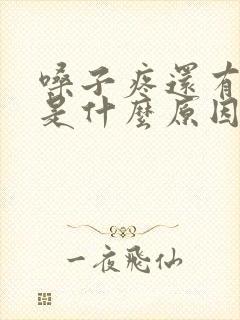 嗓子疼還有
是什麼原因
一夜飛仙